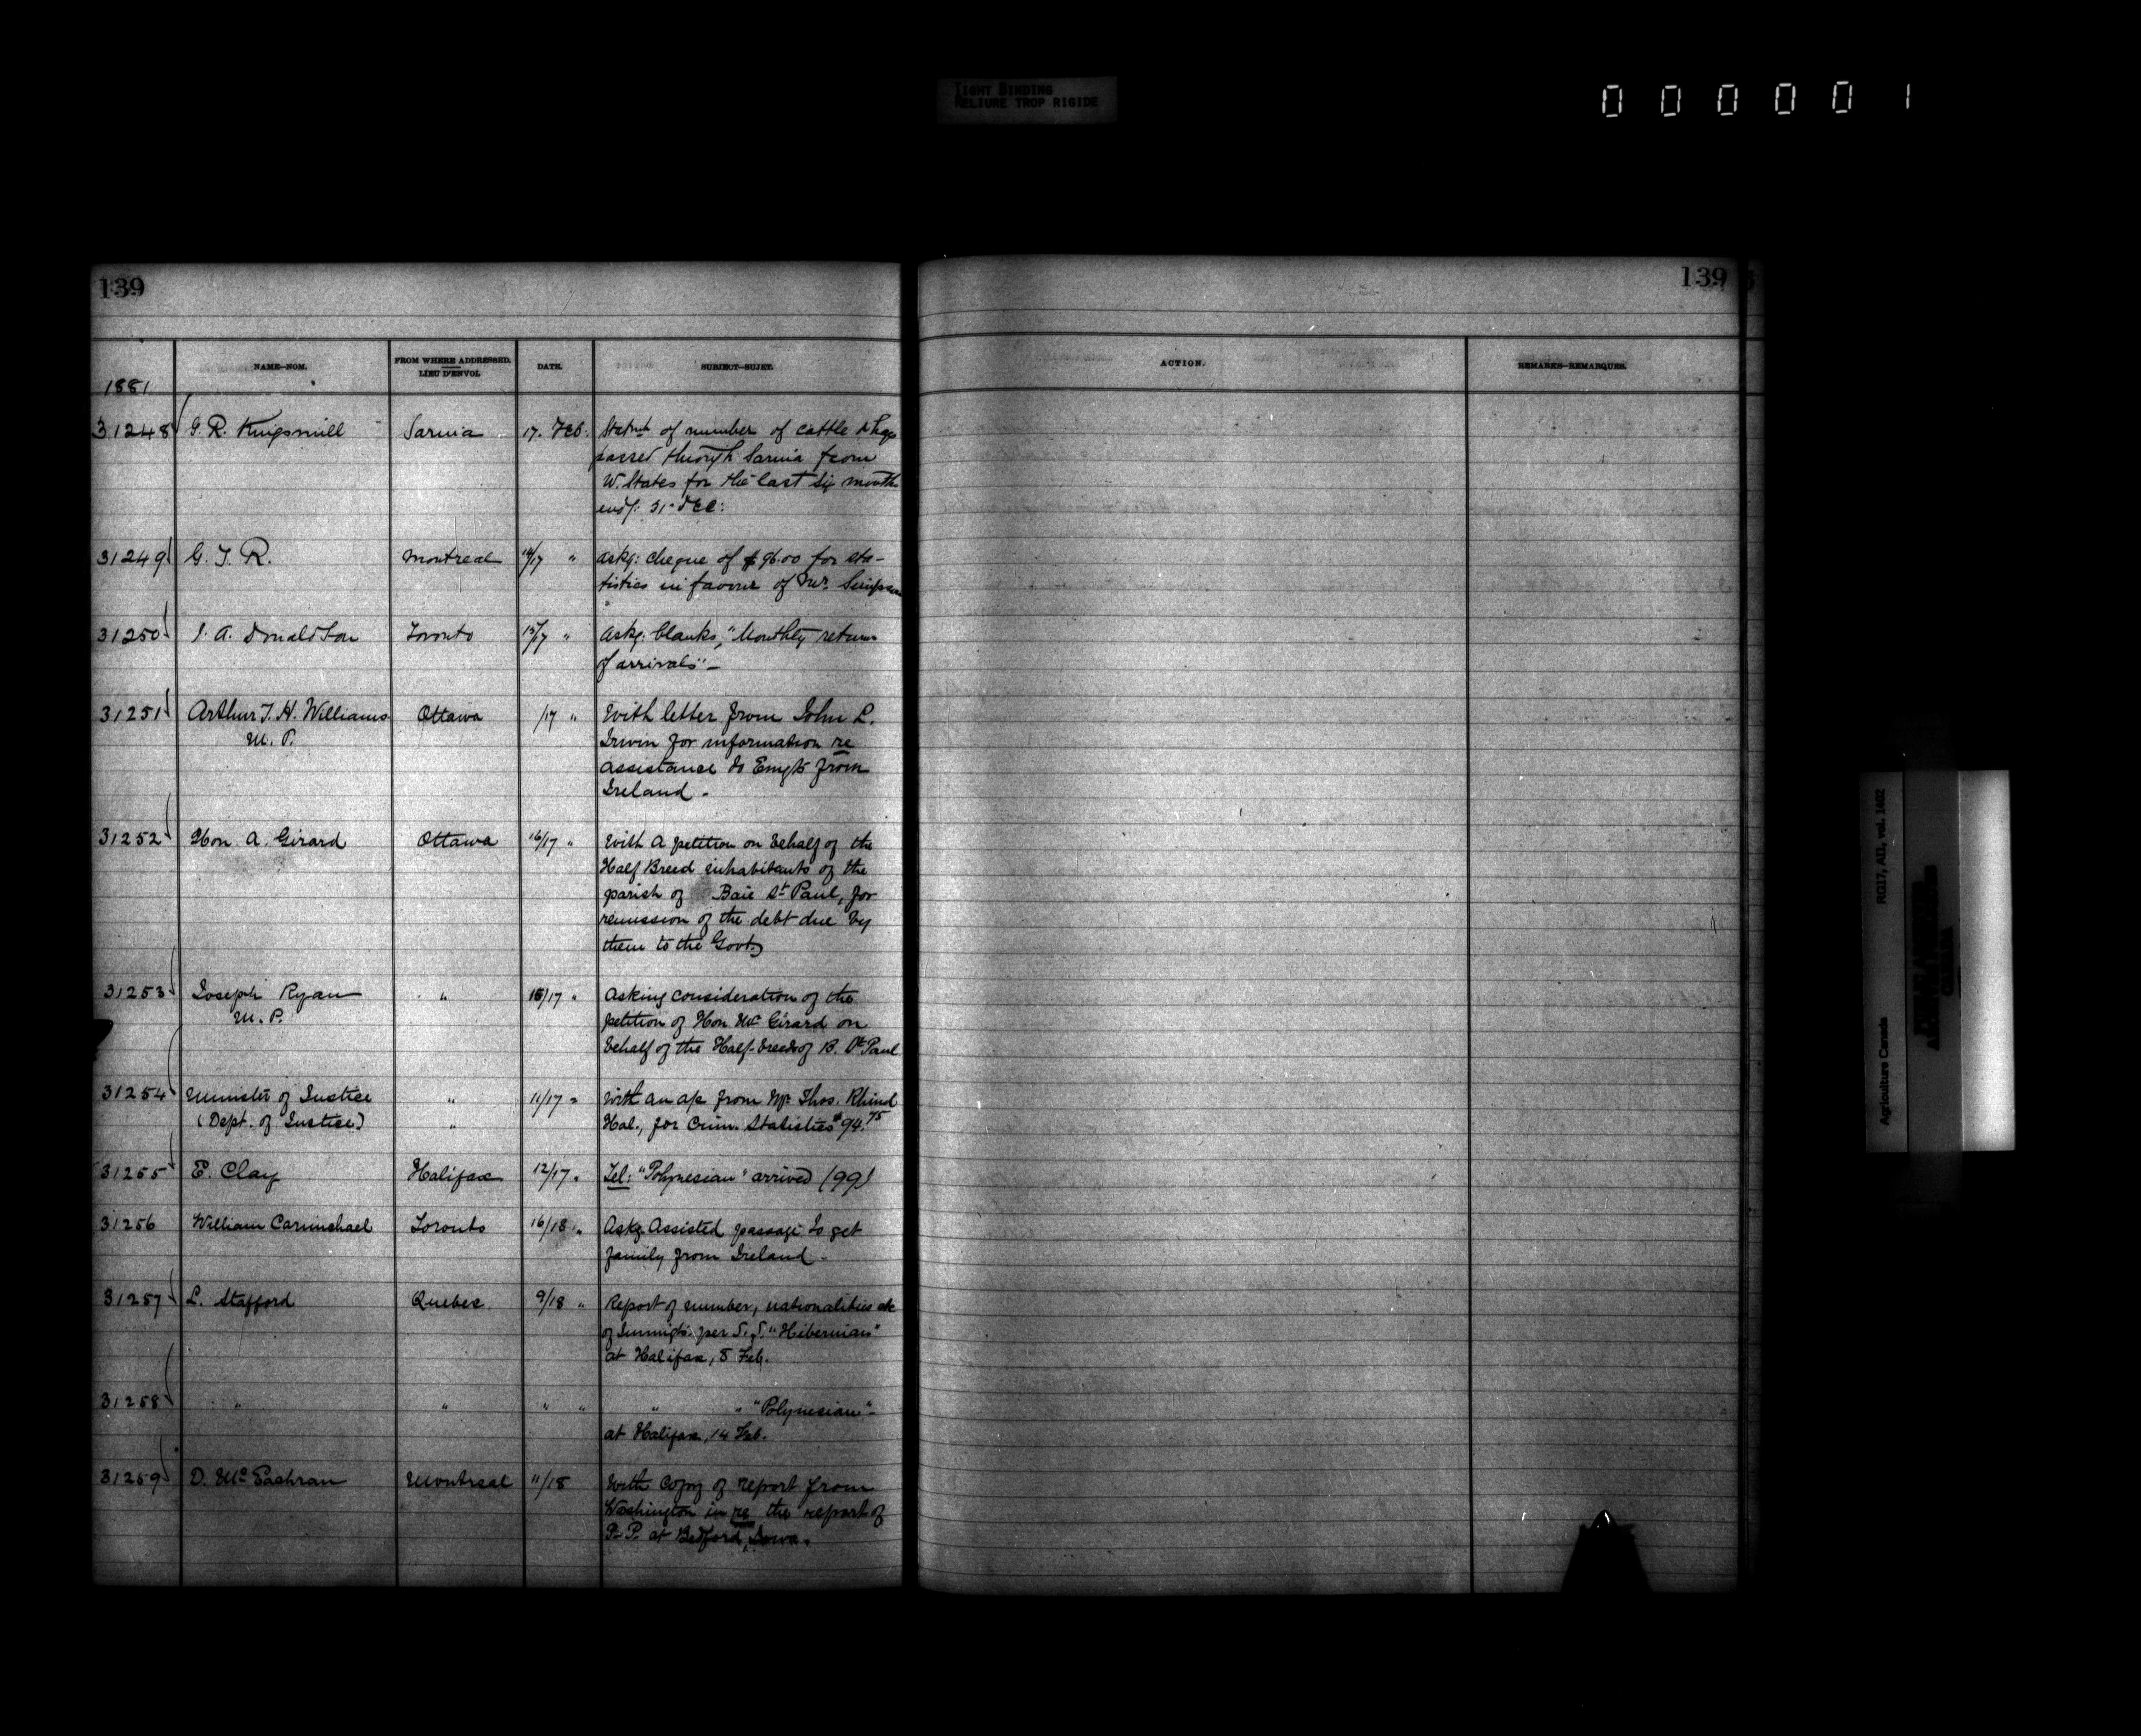 TIGHT BINDING
RELIURE TROP RIGIDE
000001
139
139
1881
NAME—NOM.
FROM WHERE ADDRESSED.
LIEU D'ENVOI.
DATE.
SUBJECT—SUJET.
ACTION.
REMARKS—REMARQUES.
31248 G. R. Kingsmill Sarnia 17. Feb. Statmt of number of cattle & hogs
passed through Sarnia from
W. States for the last six months
endg: 31st Dec:
31249 G. T. R. Montreal 14/17 " Askg: cheque of $96.00 for sta-
tistics in favour of Mr. Simpson
31250 J. A. Donaldson Toronto 15/17 " Askg: blanks, "Monthly returns
of arrivals" —
31251 Arthur T. H. Williams Ottawa /17 " With letter from John L.
M. P. Irwin for information re
assistance to Emgts from
Ireland -
31252 Hon. A. Girard Ottawa 16/17 " With a petition on behalf of the
Half Breed inhabitants of the
parish of Baie St Paul, for
remission of the debt due by
them to the Govt.
31253 Joseph Ryan " 15/17 " Asking consideration of the
M. P. petition of Hon Mr Girard on
behalf of the Half-breeds of B. St Paul
31254 Minister of Justice " 11/17 " With an a/c from Mr. Thos. Rhind
(Dept. of Justice) " Hal., for Crim. Statistics $94.75
31255 E. Clay Halifax 12/17 " Tel: "Polynesian" arrived (99)
31256 William Carmichael Toronto 16/18 " Askg Assisted passage to get
family from Ireland -
31257 L. Stafford Quebec 9/18 " Report of number, nationalities etc
of Immigts. per S. S. "Hibernian"
at Halifax, 8 Feb.
31258 " " " " " " "Polynesian" -
at Halifax, 14 Feb.
31259 D. McEachran Montreal "/18 With Copy of report from
Washington in re the report of
P. P. at Bedford, Iowa.
Agriculture Canada RG17, AI1, vol. 1402